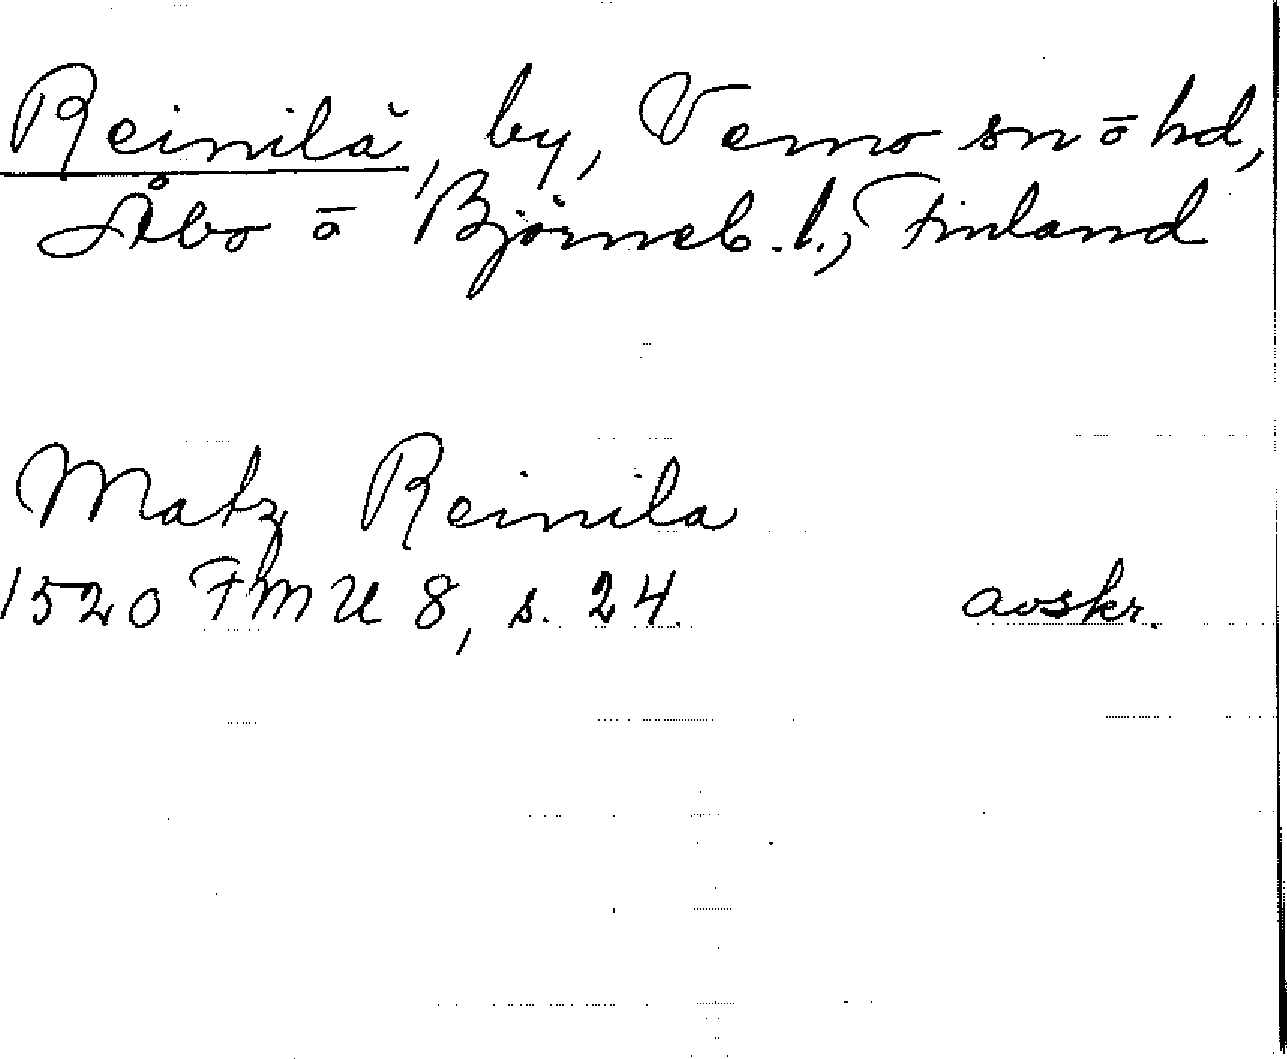 Reinilä, by, Vemo sn ō hd,
Åbo ō Björneb. l., Finland
Matz Reinila
1520 FMU 8, s. 24. avskr.